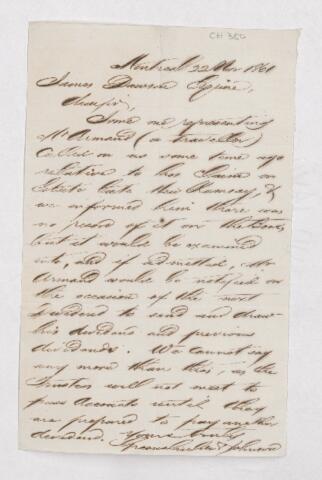 CH 386
Montreal 22 Nov 1861
James Dawson Esquire,
Dear Sir,
Some one representing
Mr Armand (a traveller)
Called on us some time ago
relative to his Claim on
Estate late Ramsay, &
we informed him there was
no record of it on the Books
but it would be examined
into, and if admitted, Mr
Armand would be notified on
the occasion of the next
dividend to send and draw
his dividend and previous
dividends. We cannot say
any more than this, as the
Trustees will not meet to
pass accounts until they
are prepared to pay another
dividend. Yours truly
& Johnson